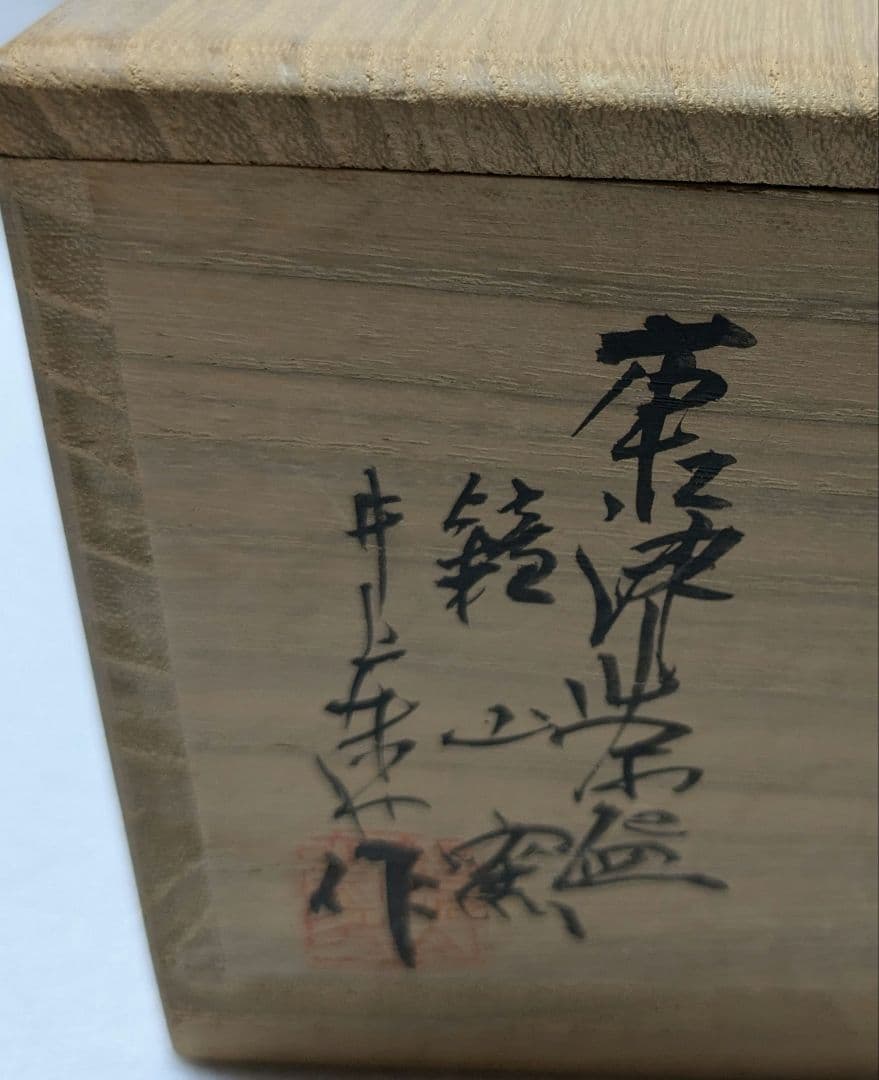 唐津茶盌
鏡山窯
井上東也作